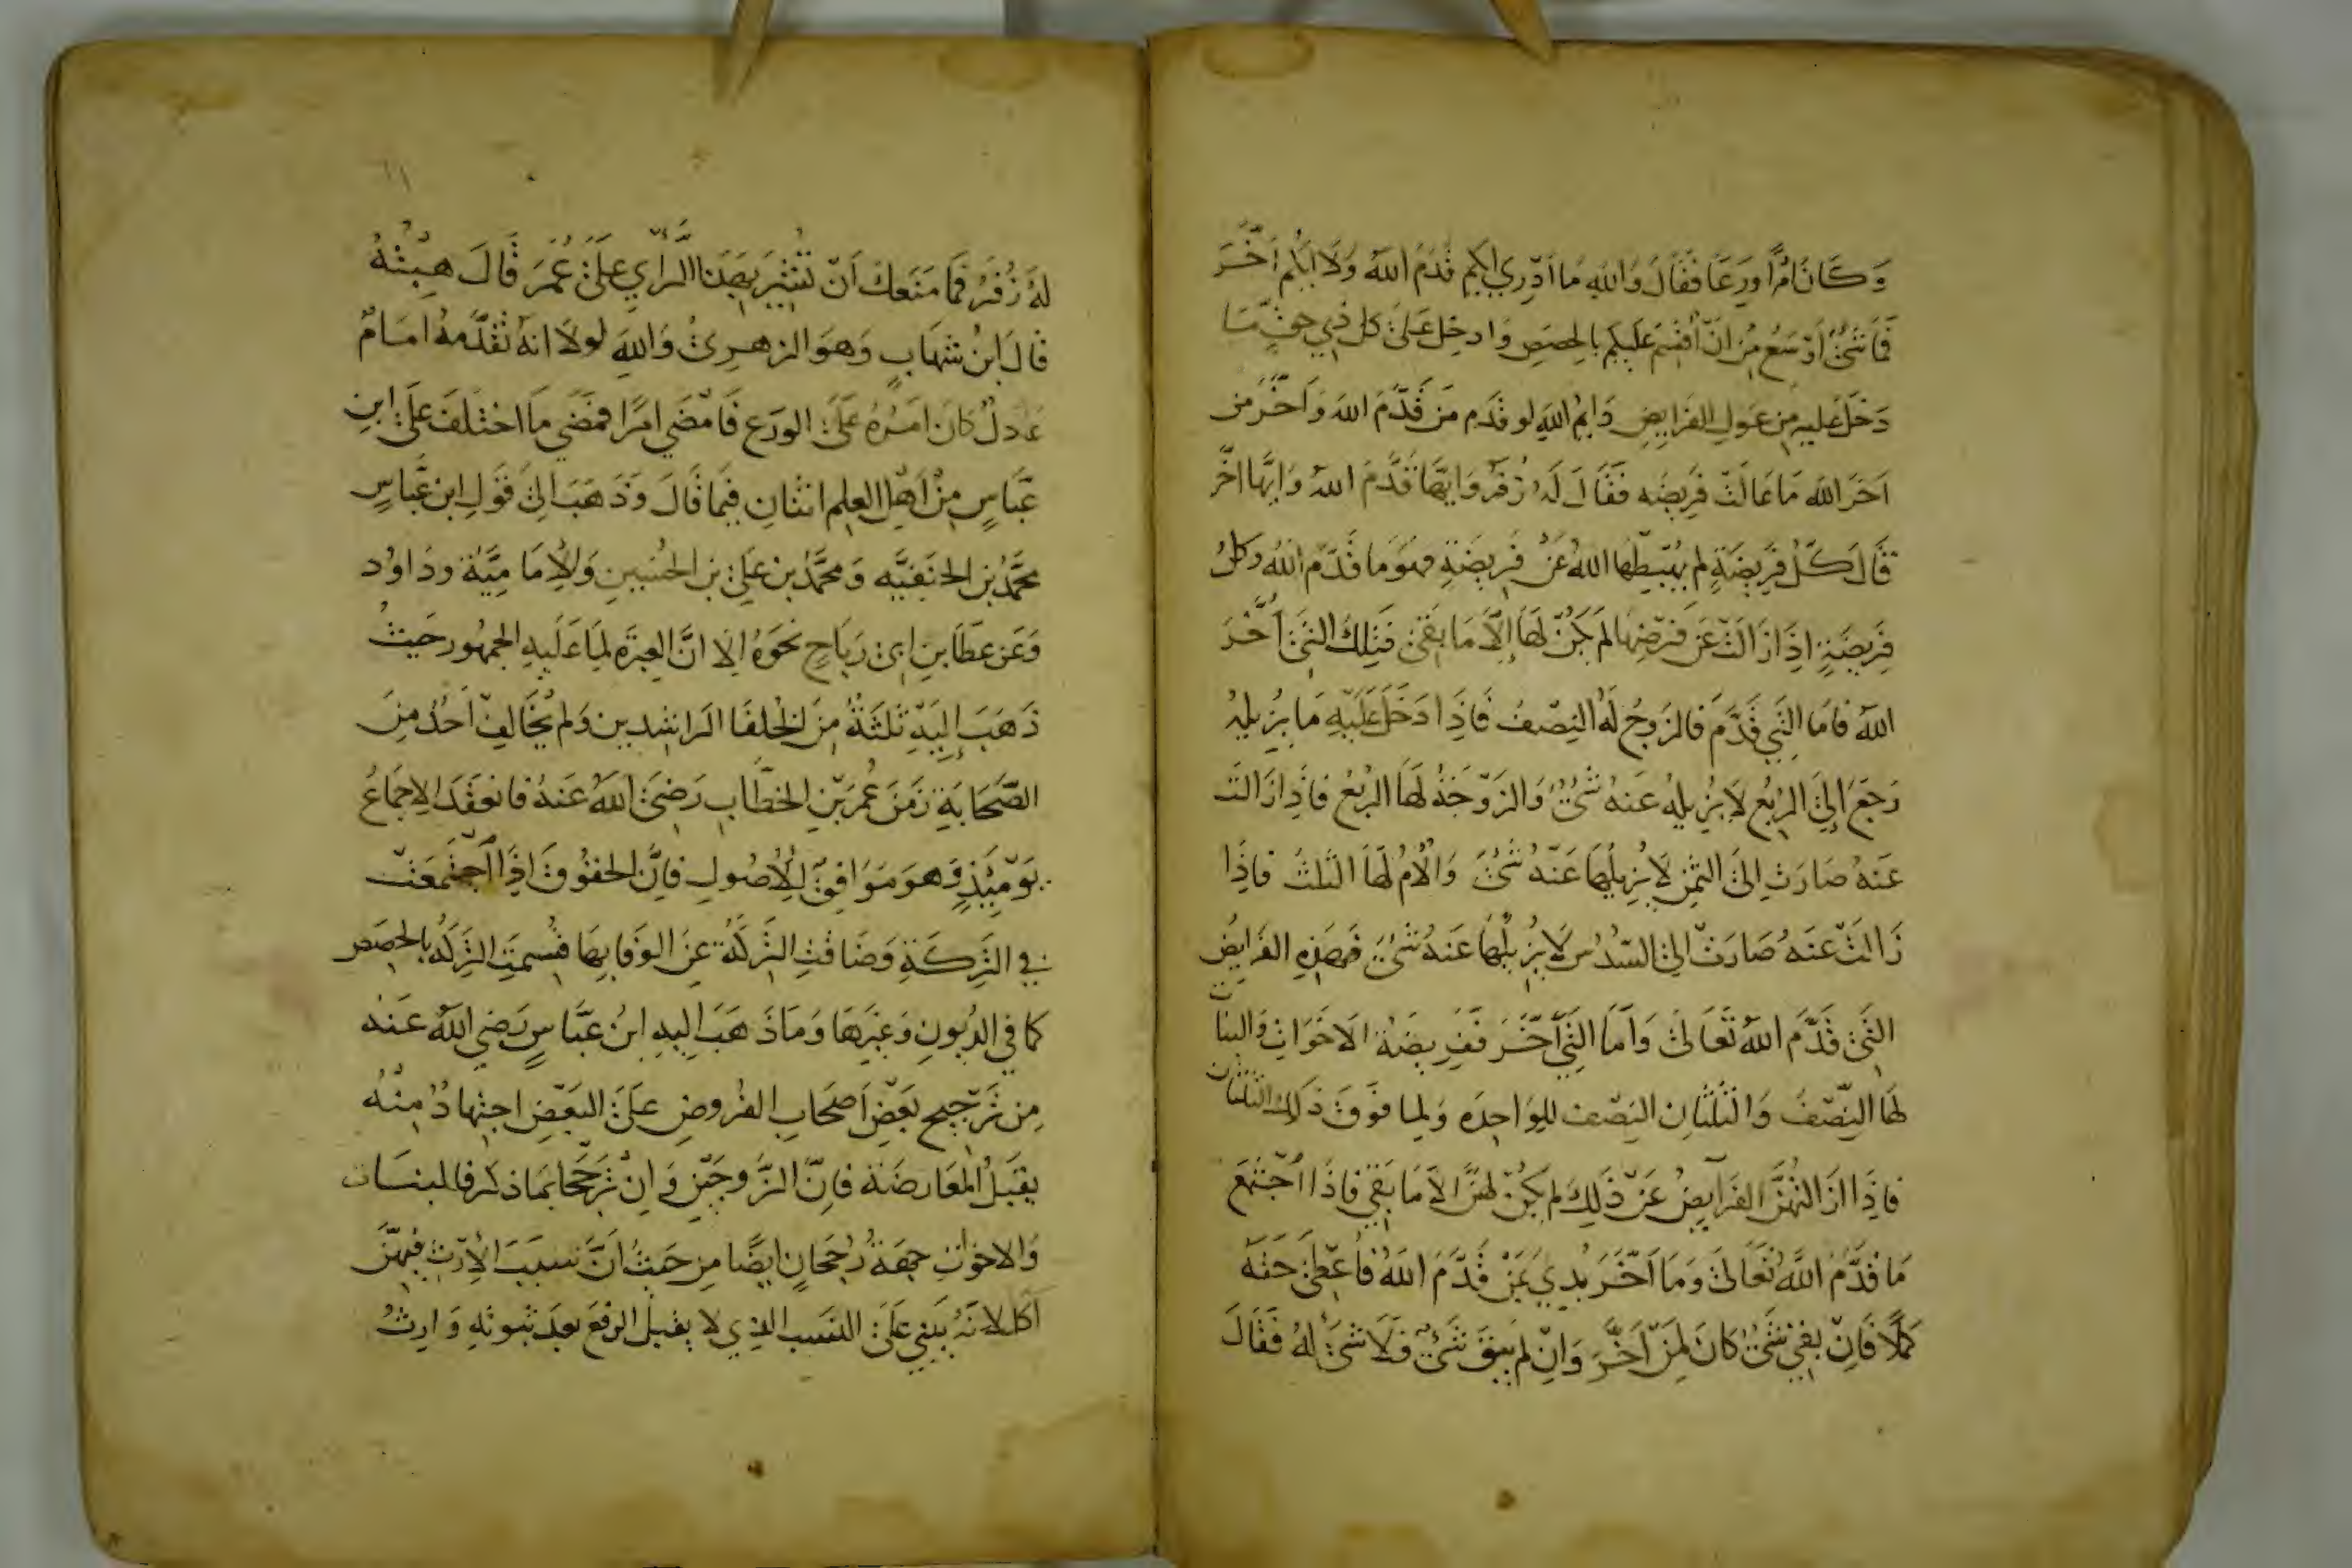 وَكَانَ امْرَأً وَرِعًا فَقَالَ وَاللهِ مَا اَدْرِي ايكم قَدَمَ اللهُ وَلَا ايكم اَخَّرَ
فَمَا شَئٌ اَوْسَعُ مِنْ انْ أُقْسِمَ عَلَيكم بِالحِصَصِ وَادخِل عَلَىٰ كل ذِي حقٍّ مَا
دَخَلَ عليهِ مِن عَولِ الفَرايضِ وَايمُ اللهِ لو قدَم مَنْ قَدَّمَ اللهُ وَاَخَّرَ مَن
اَخَرَ الله مَا عَالَتْ فَرِيضَه فَقَالَ لَهُ زُفَرُ وَايّهَا قَدَّمَ اللهُ وَايّهَا اخَّرَ
قَالَ كُلُّ فَرِيضَةٍ لم يُهْبِطْهَا اللهُ عَنْ فَرِيضَةٍ فهُوَ مَا قَدَّمَ اللهُ وَكلُ
فَرِيضَةٍ اِذَا زَالَتْ عَن فَرضِهَا لَم يَكُنْ لَهَا اِلَّا مَا بَقىَ فَتِلكَ التَّي اَخَّرَ
اللهُ فَامَا التَّي قَدَّمَ فَالزَوجُ لَهُ النِصْفُ فَاِذَا دَخَلَ عَلَيْهِ مَا يُزِيلهُ
رَجَعَ اِلىَ الرُبُعِ لَا يُزِيلهُ عَنهُ شَئٌ وَالزَوْجَةُ لَهَا الرُبُعُ فَاِذَا زَالَتْ
عَنهُ صَارَتْ اِلىَ الثمُنِ لَا يُزِيلُهَا عَنْهُ شَئٌ وَالْامُ لَهَا الثلثُ فَاِذَا
زَالَتْ عَنهُ صَارَتْ اِلىَ السُّدُسِ لَا يُزِيلُهَا عَنهُ شَئٌ فَهَذِهِ الفَرَايضُ
التَّي قَدَّمَ اللهُ تَعَالىَ وَاَمَّا التَّي اَخَّرَ فَفَرِيضَةُ الاَخَوَاتِ وَالبنَات
لَهَا النِّصْفُ وَالثُلثَانِ النِصْف لِلوَاحِدَه وَلِمَا فَوقَ ذَلِكَ الثلثَان
فَاِذَا ازَالتْهُنَّ الفَرَايضُ عَنْ ذَلِكَ لم يَكُنْ لَهُنَّ الاَّ مَا بَقِيَ فَاِذَا اجْتَمَعَ
مَا قَدَّمَ اللَّهُ تَعَالىَ وَمَا اَخَّرَ بُدِي بَمَنْ قَدَّمَ اللهُ فَاُعْطِىَ حَقَّهُ
كَمَلًا فَاِنْ بَقِيَ شَئٌ كَانَ لِمَنْ اَخَّرَ وَاِنْ لم يَبْقَ شَئٌ فَلَا شَئَ لهُ فَقَالَ
لهُ زُفَرُ فَمَا مَنَعَكَ اَنْ تُشِيْرَ بِهَذَا الرَّأْيِ عَلىَ عُمَرَ قَالَ هِبْتُهُ
قَالَ ابنُ شهَابٍ وَهوَ الزهرِيُّ وَاللهِ لولَا انهُ تقدَّمهُ امَامُ
عَادلٌ كَانَ امرُهُ عَلىَ الورَعِ فَامْضَي امرًا فمَضَي مَا اختلَفَ عَلىَ ابنِ
عَبَّاسٍ مِنْ اَهْلِ العِلمِ اثنَانِ فِيمَا قَالَ وَذَهَبَ الىَ قَولِ ابنِ عَبَّاسٍ
محمَّدُ بن الحنَفِيَّه وَمحمَّدُ بن عَلِيّ بن الحُسَيِنِ وَالْاِمَامِيَّة وَدَاوُد
وَعَن عَطَا بنِ ابىِ رَبَاحٍ نحوَهُ اِلَا انَّ العِبرَةَ لِمَا عَلَيهِ الجمهُور حَيثُ
ذَهَبَ اِلَيْهِ ثَلثَةٌ مِنَ الخُلفَا الرَاشِدِين وَلم يُخَالِفْ اَحَدٌ مِنَ
الصَّحَابَةِ زَمَنَ عُمَر بْنِ الخطَّابِ رَضِيَ اللهُ عَنهُ فَانعَقَدَ الاِجمَاعُ
يَوْمَئِذٍ وَهوَ مَوَافِقٌ لِلْاُصُولِ فَاِنَّ الحقوُقَ اِذَا اَجْتَمعَتْ
في التَّرِكَةِ وَضَاقتِ التَّرِكَةُ عَنِ الوَفَا بِهَا قسمتِ التَّرِكَةُ بالحِصَصِ
كَما في الديُونِ وَغيرِهَا وَمَا ذَهَبَ الَيهِ ابنُ عَبَّاسٍ رَضِي اللهُ عَنهُ
مِن تَرجِيحِ بَعْضِ اَصحَابِ الفرُوضِ عَلىَ البَعْضِ اجتِهادٌ مِنْهُ
يقبَلُ المعَارضَةَ فَاِنَّ الزَّوجَيْنِ وَاِنْ تَرَجَّحَا بمَا ذكر فَالبنَات
وَالاخوَاتِ جهَةُ رُجحَانٍ ايضًا مِن حَيثُ اَنَّ سبَبَ الْاِرثِ فِيهِنَّ
اَكل لانهُ يَبتني عَلىَ النسَبِ الذِي لا يقبلُ الرفعَ بعدَ ثبُوتِهِ وَارثُ